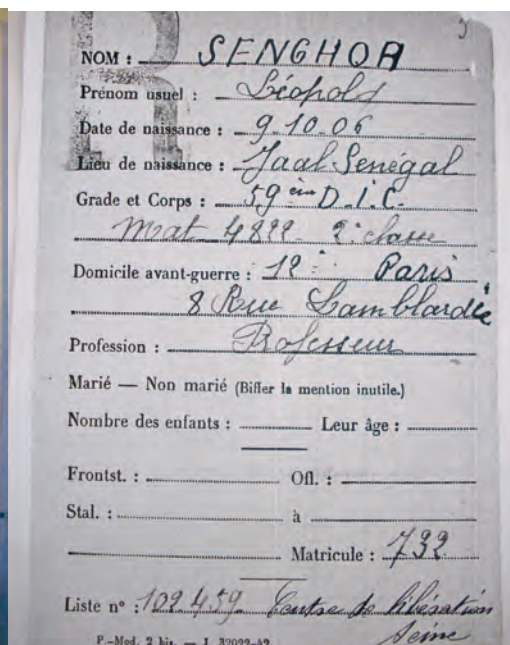 NOM : SENGHOR
Prénom usuel : Léopold
Date de naissance : 9.10.06
Lieu de naissance : Jaal Senégal
Grade et Corps : 59 èm D.I.C.
Mat 4822 2e classe
Domicile avant-guerre : 12e Paris
8 Rue Lamblardie
Profession : Professeur
Marié — Non marié (Biffer la mention inutile.)
Nombre des enfants : Leur âge :
Frontst. : Ofl. :
Stal. : à
Matricule : 732
Liste n° : 109.459 Centre de libération
Seine
P.-Mod. 2 bis. — J. 32022-42